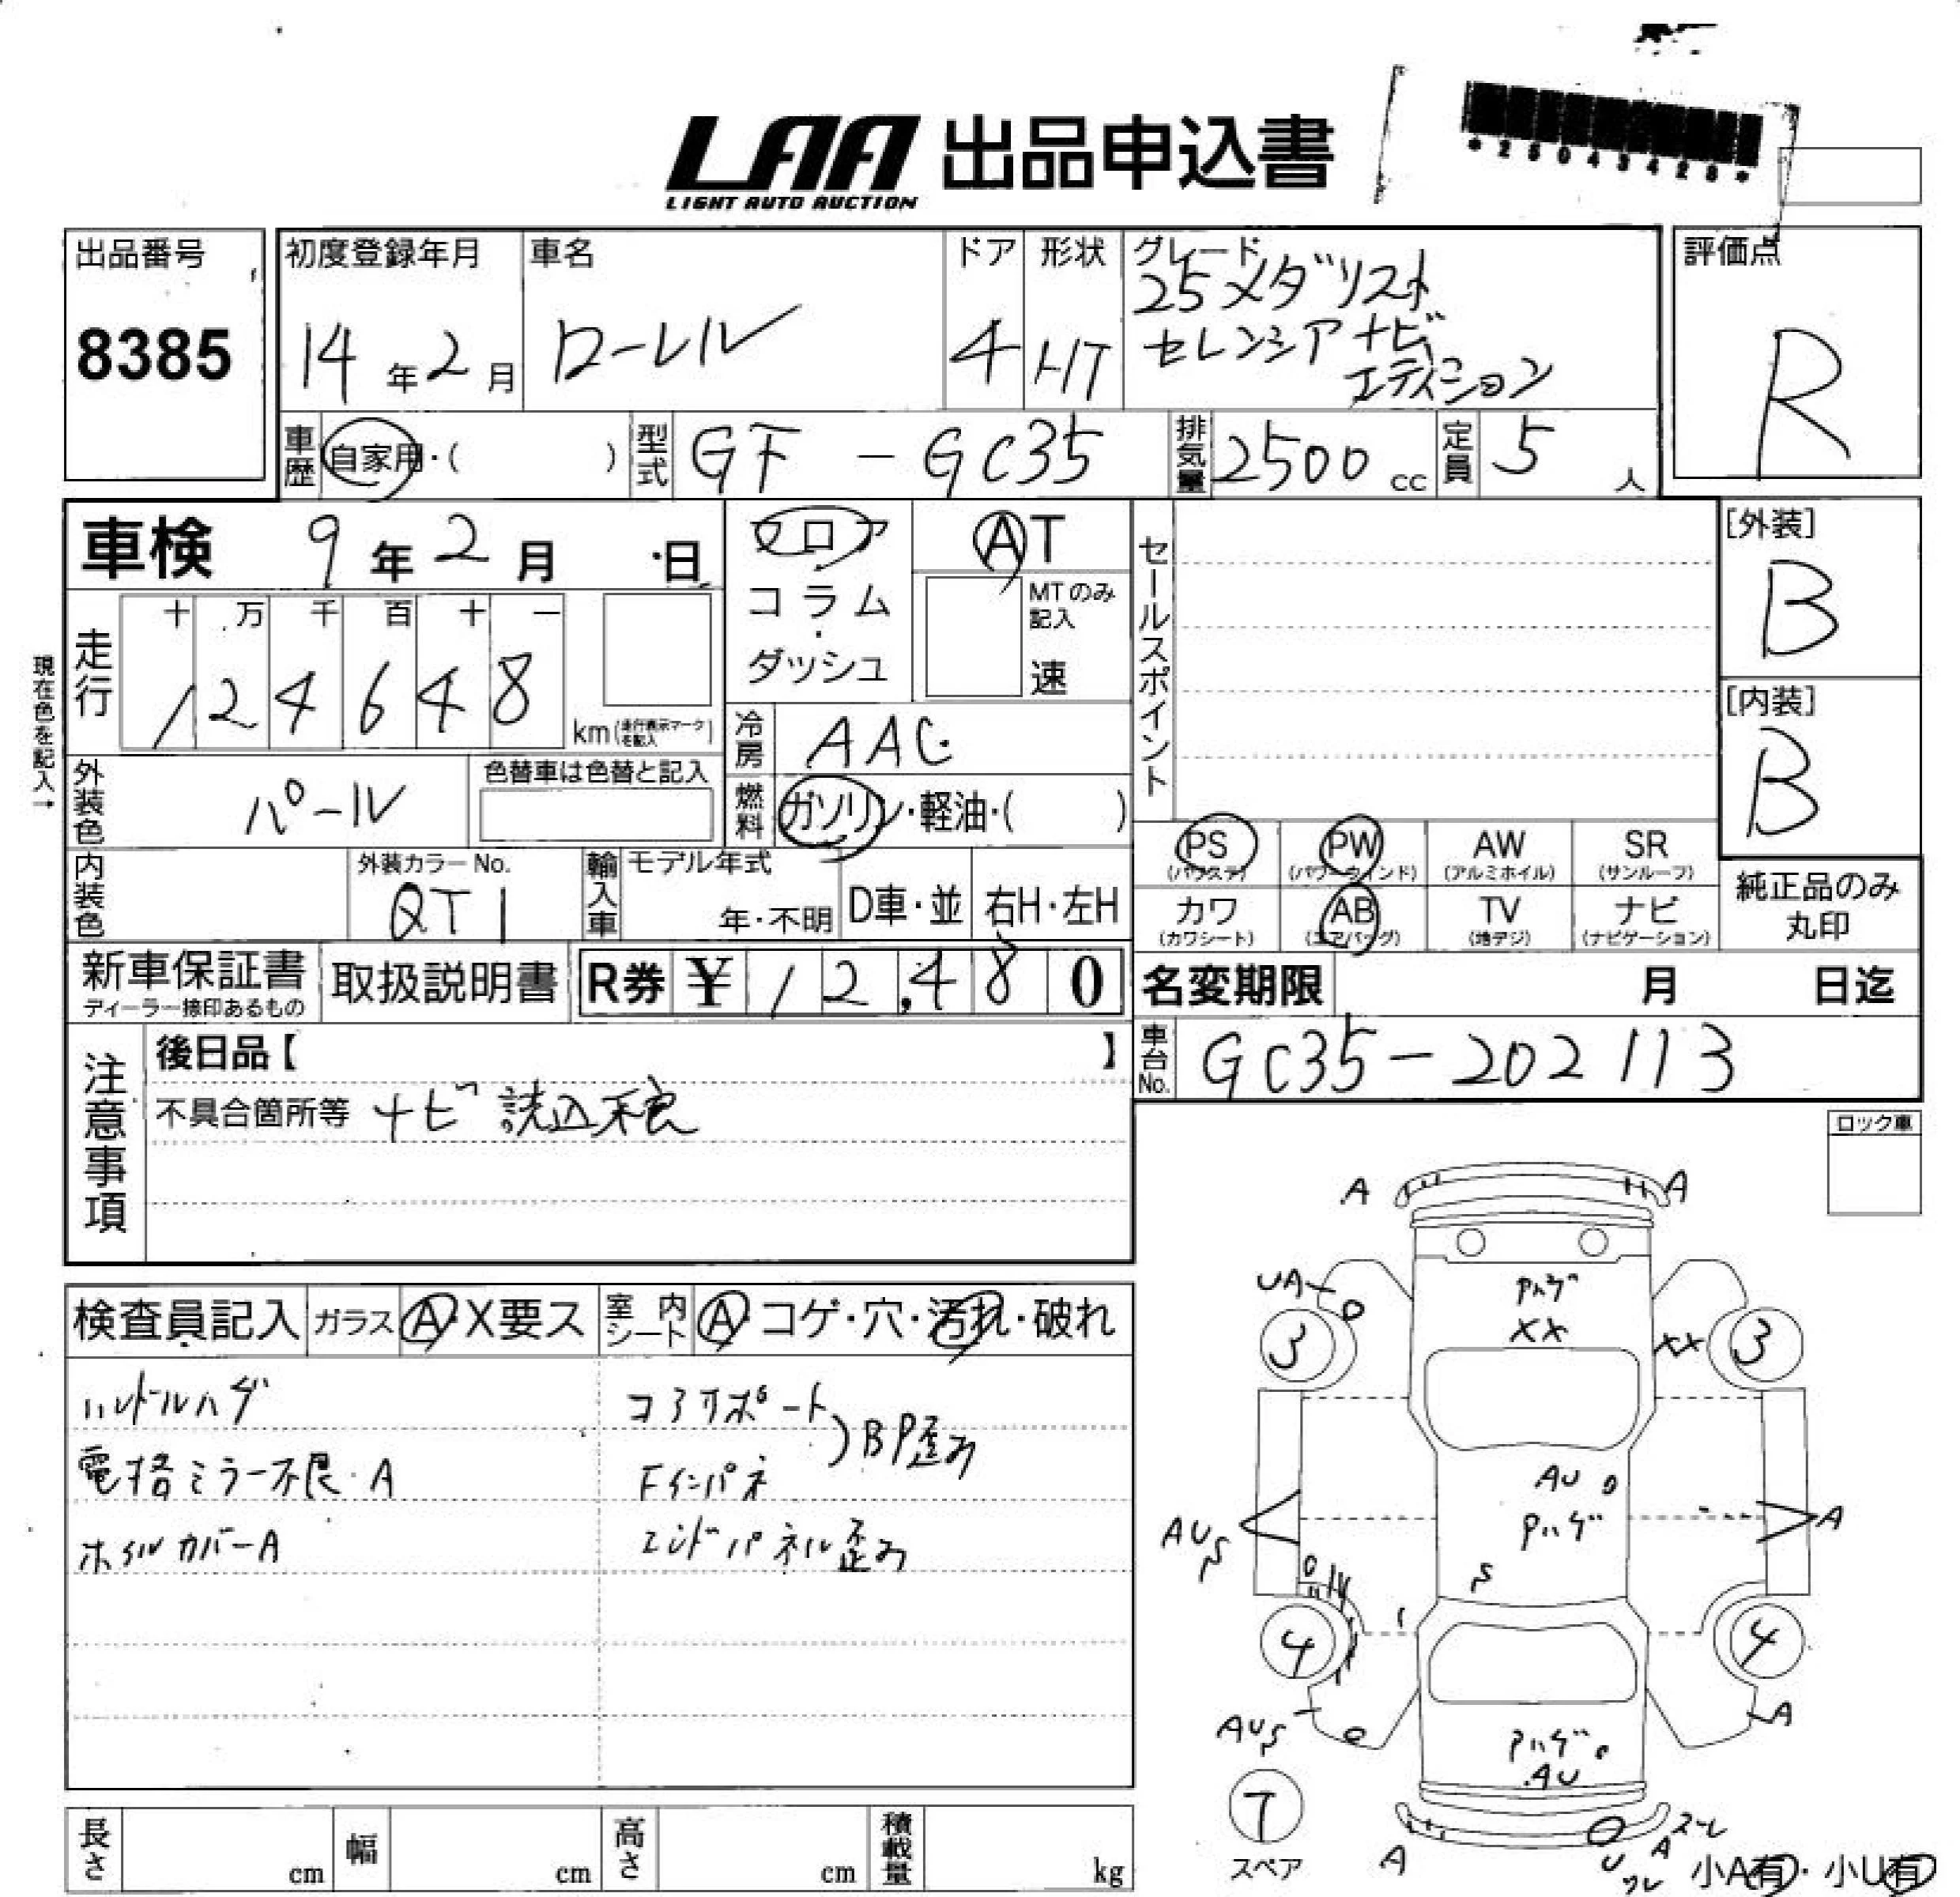 LAA 出品申込書
LIGHT AUTO AUCTION
*25043428*
出品番号
8385
初度登録年月
14年2月
車名
ローレル
ドア
4
形状
HT
グレード
25メダリスト
セレンシアナビ
エディション
評価点
R
車歴
自家用・( )
型式
GF - GC35
排気量
2500 cc
定員
5人
車検 9年2月 日
フロア
コラム
・
ダッシュ
AT
MTのみ
記入
速
セールスポイント
[外装]
B
[内装]
B
現在色を記入→
走行
十 万 千 百 十 一
1 2 4 6 4 8
km(走行表示マークを記入)
冷房
AAC
外装色
パール
色替車は色替と記入
燃料
ガソリン・軽油・( )
PS
(パワステ)
PW
(パワーウインド)
AW
(アルミホイル)
SR
(サンルーフ)
カワ
(カワシート)
AB
(エアバッグ)
TV
(地デジ)
ナビ
(ナビゲーション)
純正品のみ
丸印
内装色
外装カラーNo.
QT1
輸入車
モデル年式
年・不明
D車・並
右H・左H
新車保証書
ディーラー捺印あるもの
取扱説明書
R券 ¥12,480
名変期限 月 日迄
車台No.
GC35-202113
注意事項
後日品【 】
不具合箇所等 ナビ読込不良
ロック車
検査員記入
ガラス A・X要ス
室内シート A・コゲ・穴・汚れ・破れ
ハンドルハゲ
電格ミラー不良・A
ホイルカバーA
コアサポート
Fインパネ
)BP歪み
エンドパネル歪み
A
A
UA
Pハゲ
XX
XX
3
3
AU
Pハゲ
AUS
A
S
4
4
AUS
A
Pハゲ
AU
7
スペア
A
ズレ
A
U
ワレ
小A有・小U有
長さ cm
幅 cm
高さ cm
積載量 kg